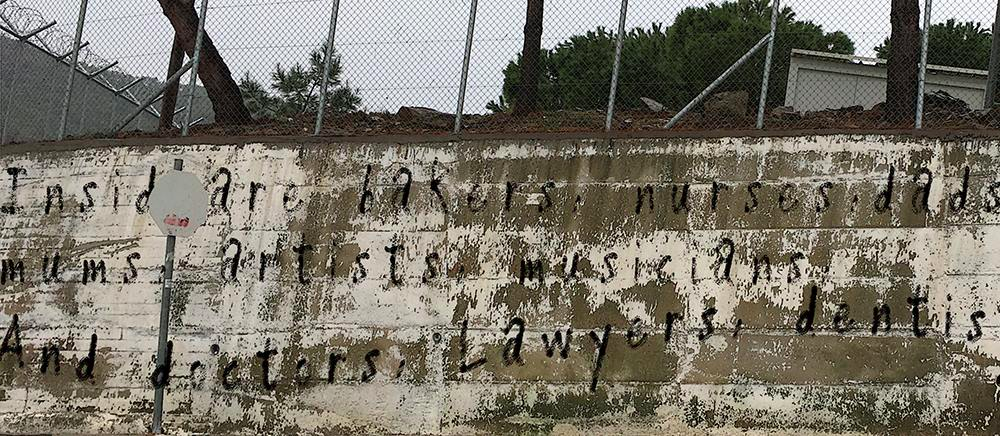 Inside are bakers, nurses, dads
mums, artists, musicians
And doctors, Lawyers, dentis